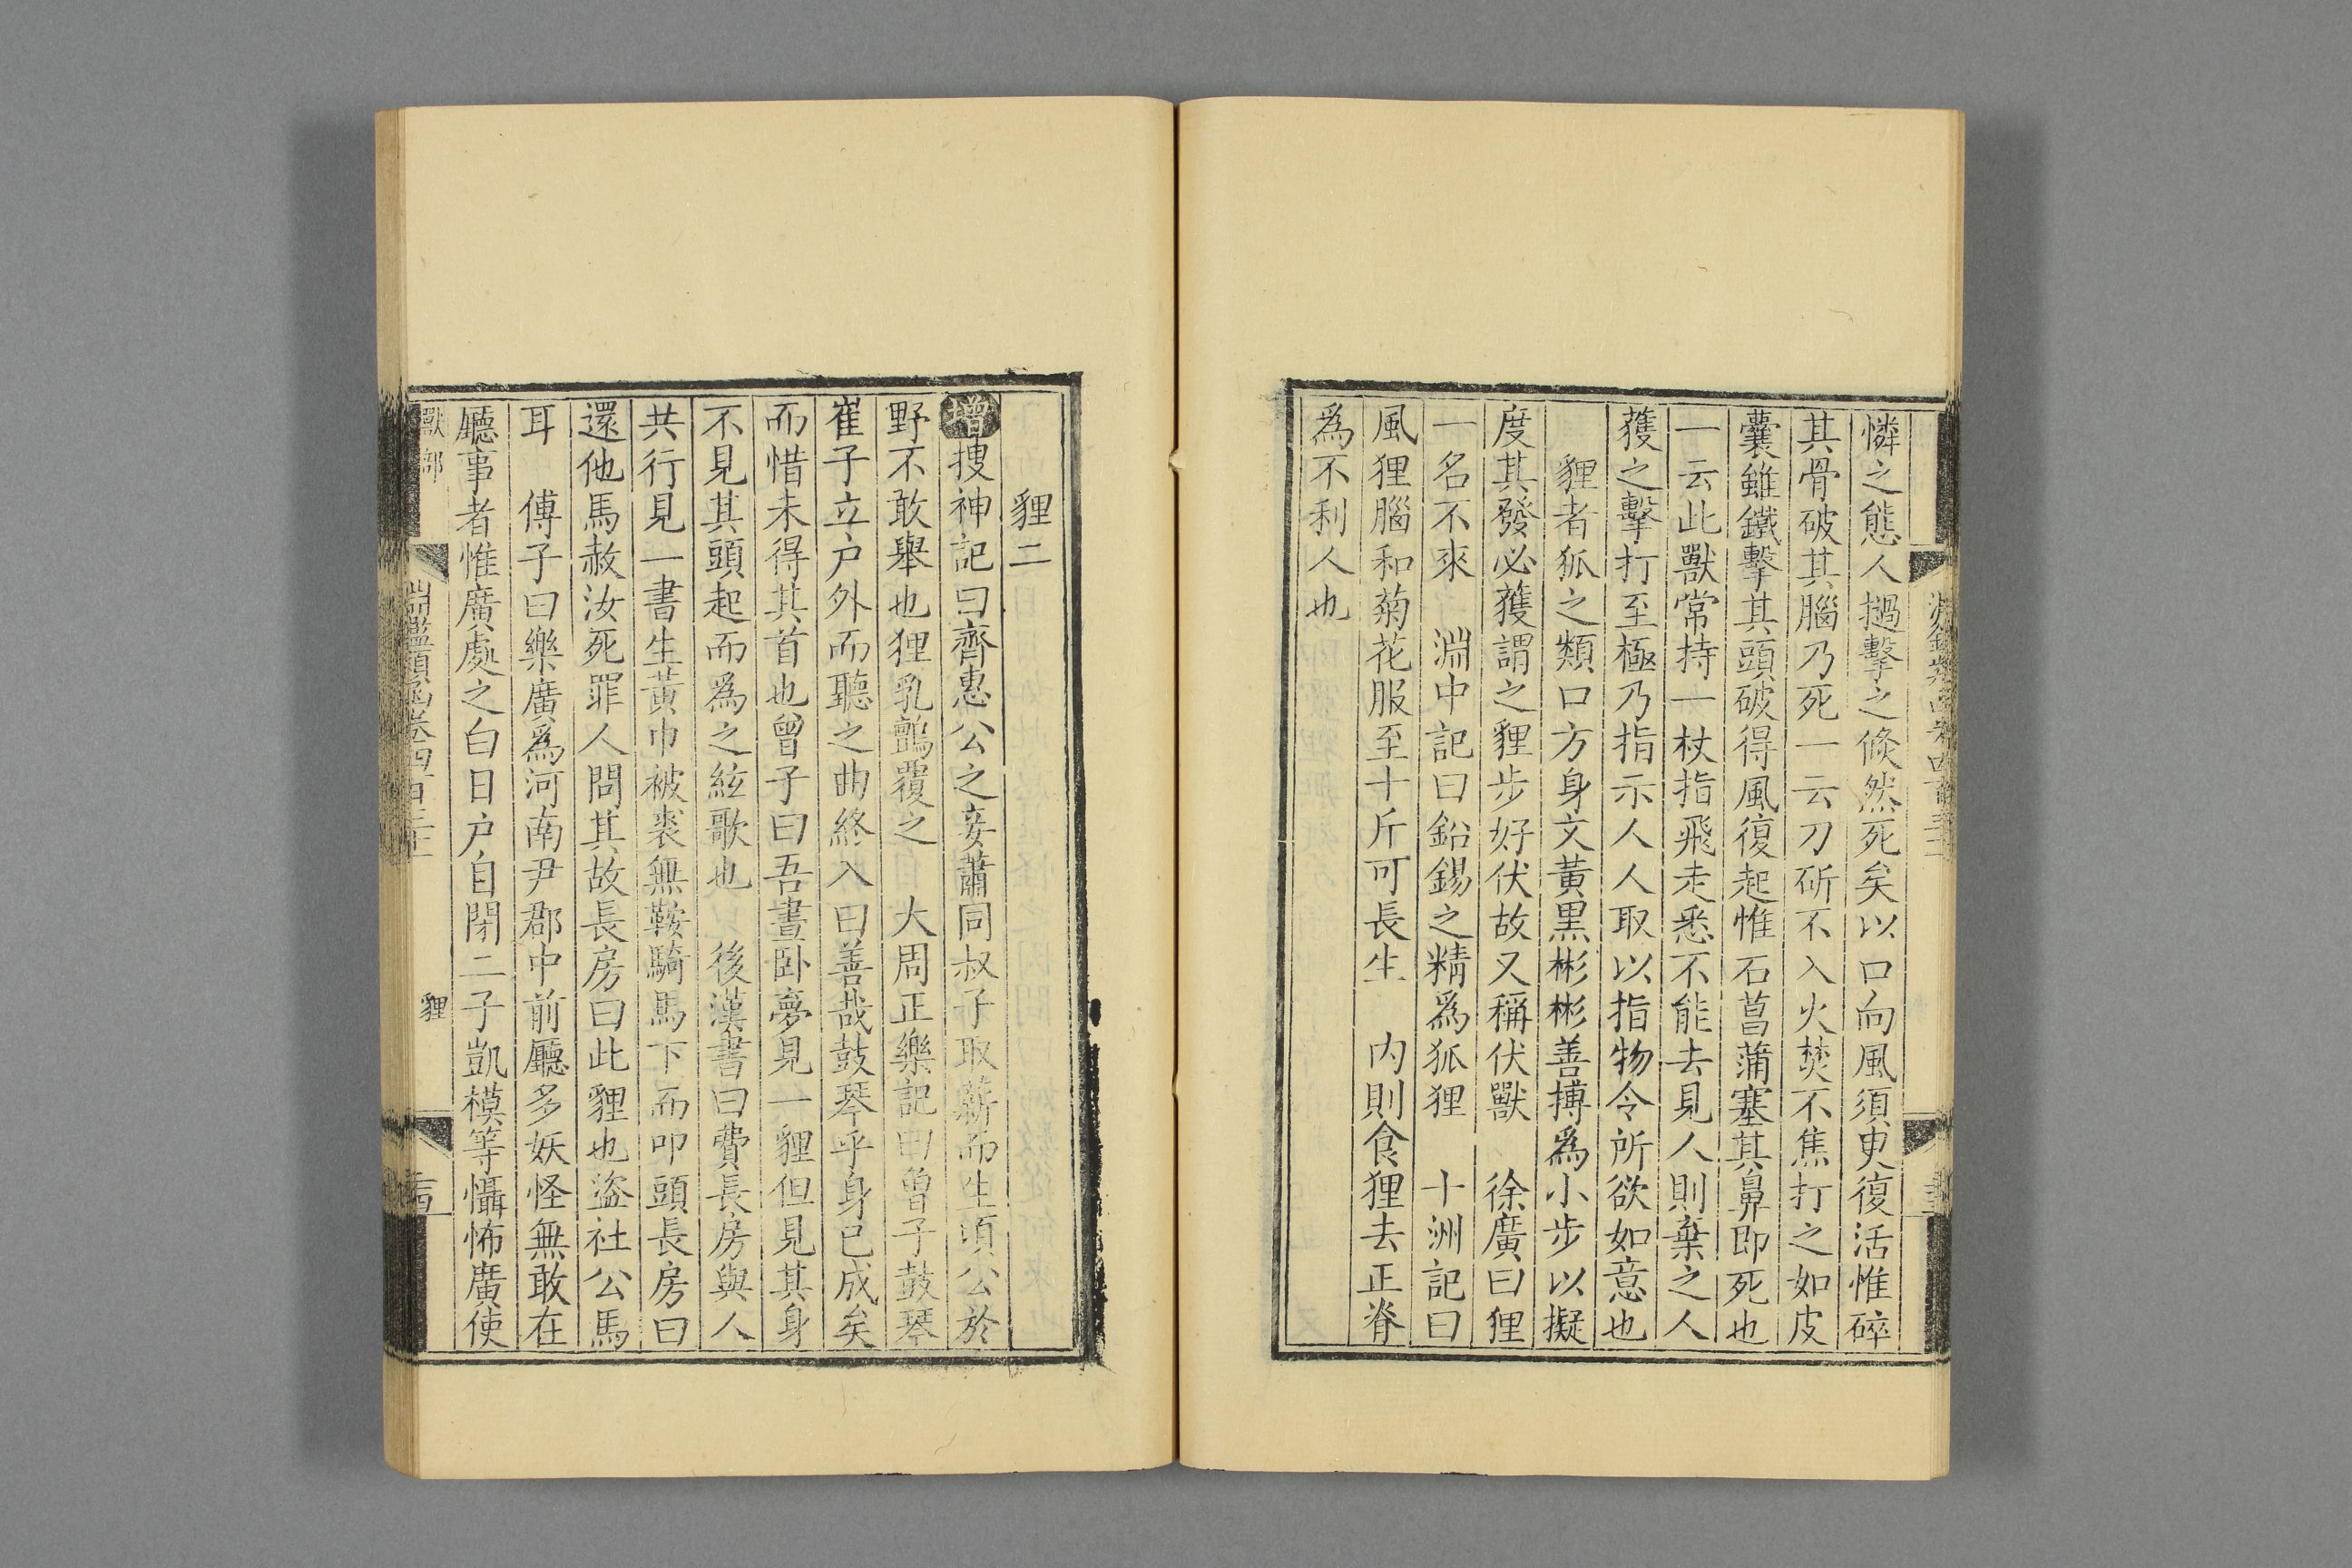 憐之態人撾擊之倐然死矣以口向風須臾復活惟碎
其骨破其腦乃死一云刀斫不入火焚不焦打之如皮
囊雖鐵擊其頭破得風復起惟石菖蒲塞其鼻即死也
一云此獸常持一杖指飛走悉不能去見人則棄之人
獲之擊打至極乃指示人人取以指物令所欲如意也
貍者狐之類口方身文黃黑彬彬善搏為小步以擬
度其發必獲謂之貍步好伏故又稱伏獸　徐廣曰狸
一名不來　淵中記曰鉛錫之精為狐狸　十洲記曰
風狸腦和菊花服至十斤可長生　內則食狸去正脊
為不利人也
貍二
增搜神記曰齊惠公之妾蕭同叔子取薪而生頃公於
野不敢舉也狸乳鸇覆之　大周正樂記曰曾子鼓琴
崔子立戶外而聽之曲終入曰善哉鼓琴乎身已成矣
而惜未得其首也曾子曰吾晝卧夢見一貍但見其身
不見其頭起而為之絃歌也　後漢書曰費長房與人
共行見一書生黃巾被裘無鞍騎馬下而叩頭長房曰
還他馬赦汝死罪人問其故長房曰此貍也盜社公馬
耳　傅子曰樂廣為河南尹郡中前廳多妖怪無敢在
廳事者惟廣處之白日户自閉二子凱模等懾怖廣使
獸部
淵鑑類函卷四百三十一
貍